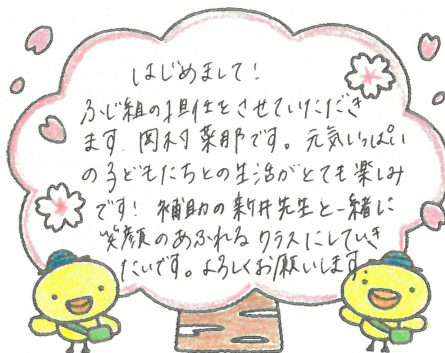 はじめまして!
ふじ組の担任をさせていただき
ます 岡村 菜那です。元気いっぱい
の子どもたちとの生活がとても楽しみ
です! 補助の新井先生と一緒に
笑顔のあふれるクラスにしていき
たいです。よろしくお願いします。